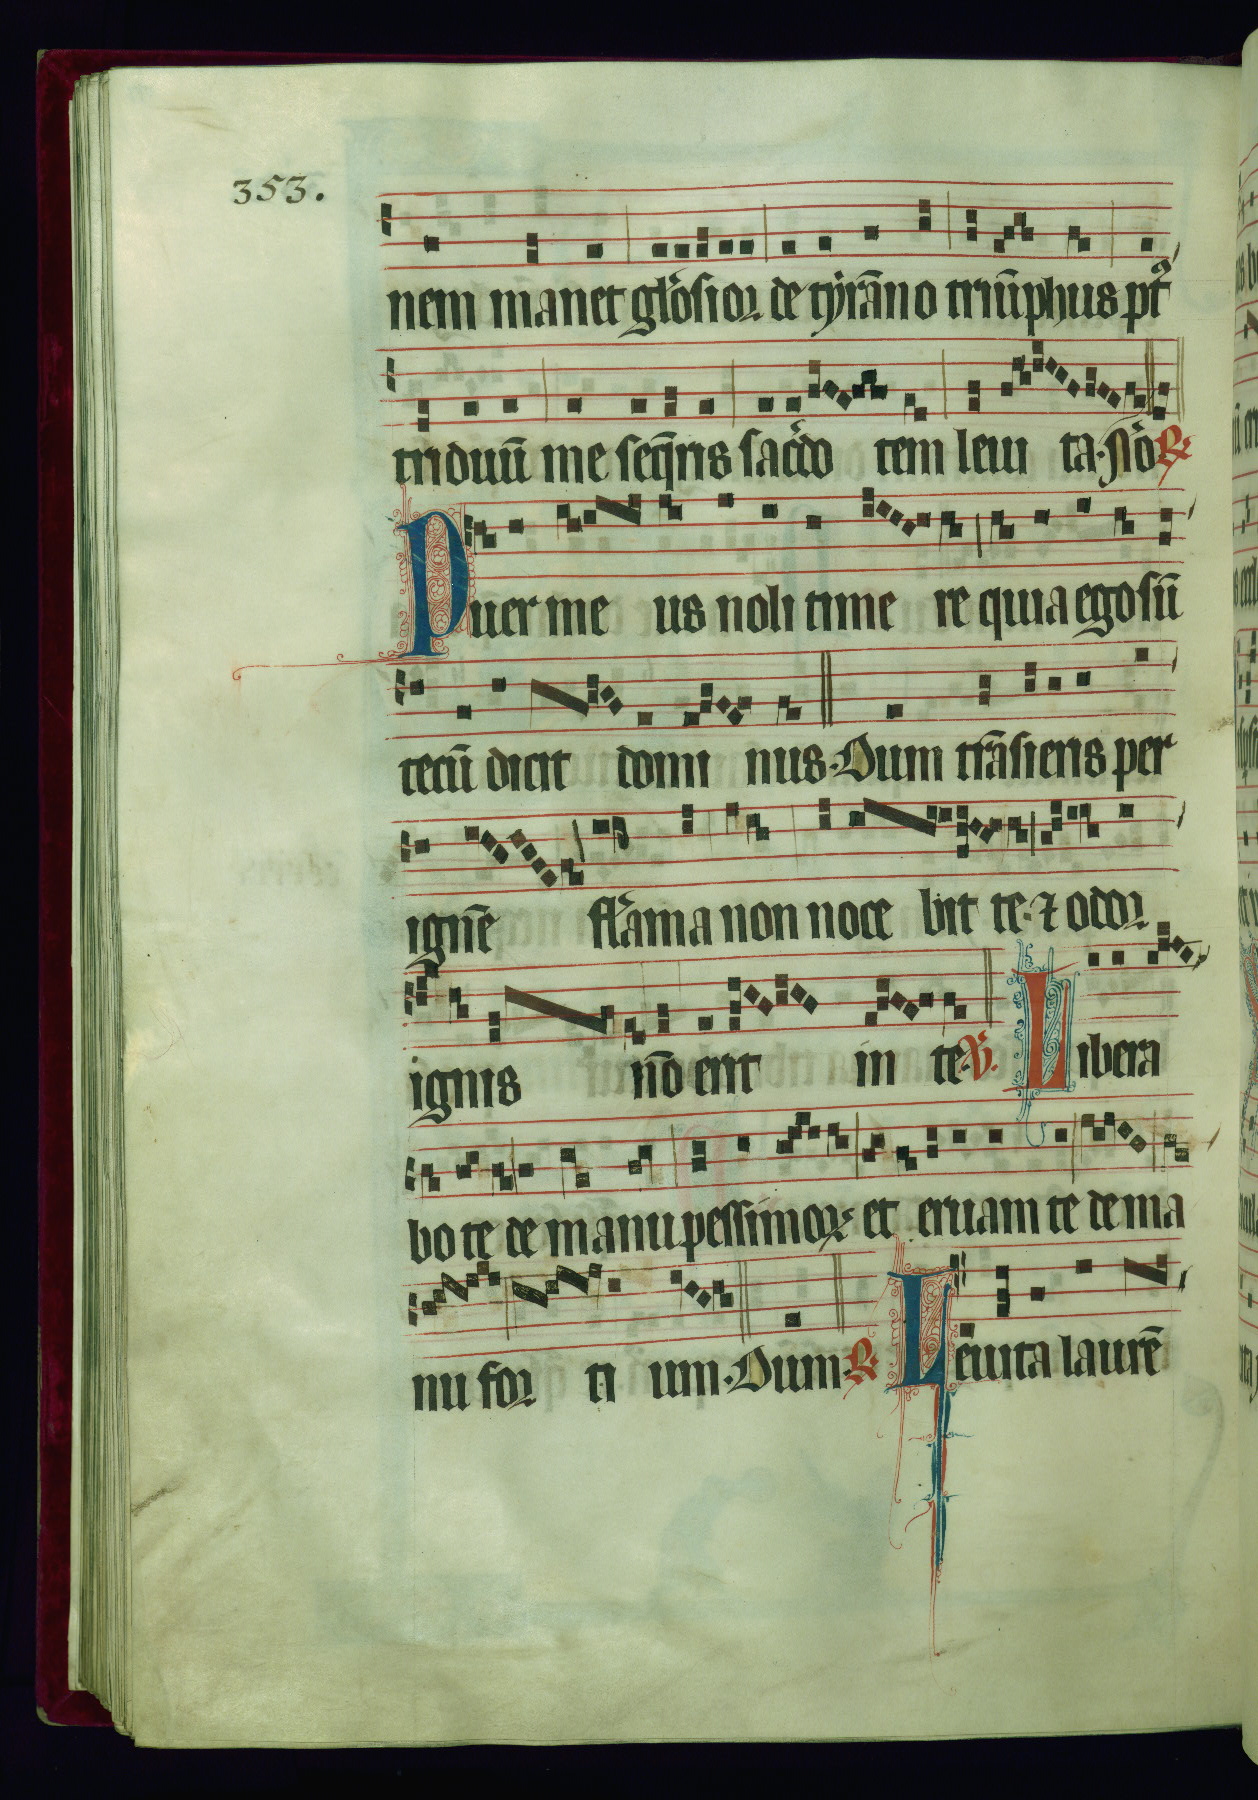 353.
nem manet gl'osior de tyrāno triūphus pt
triduū me seq̄ris sac'do tem leui ta. Nō ℟
Puer me us noli time re quia ego sū
tecū dicit domi nus. Dum trāsieris per
ignē fl'ama non noce bit te. ⁊ odor
ignis nō erit in te. ℣. Libera
bo te de manu pessimoꝝ et eruam te de ma
nu for ti um. Dum. ℟ Leuita laurē